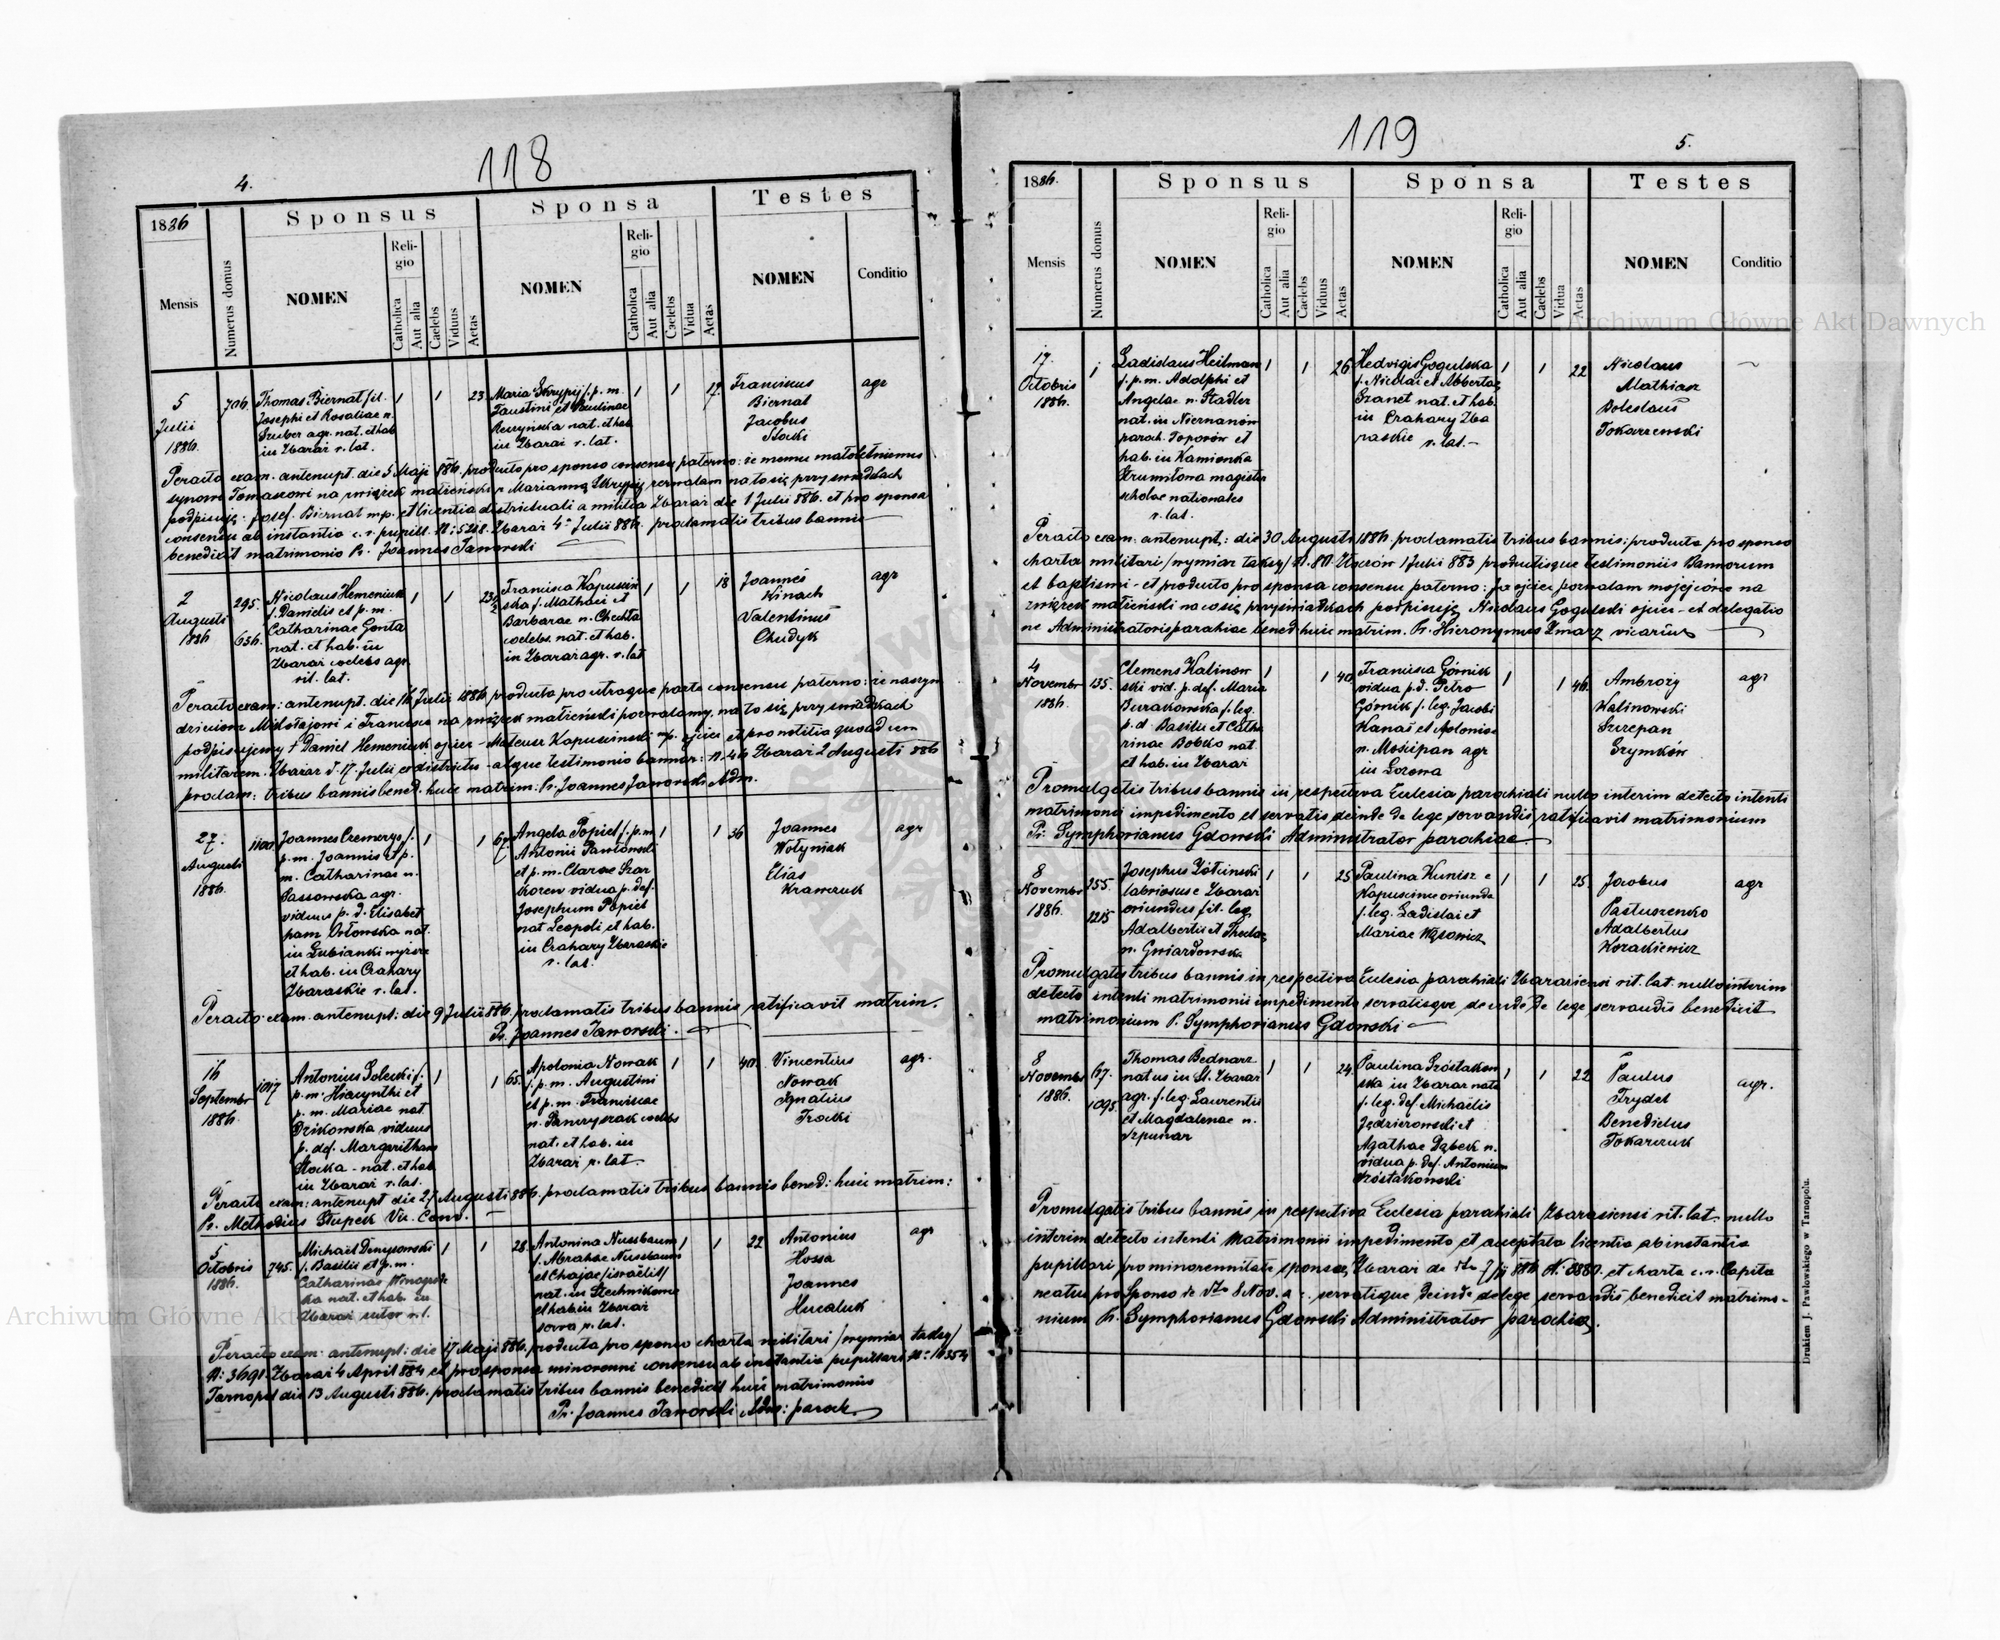 118
4.
1886
Mensis
Numerus domus
Sponsus
NOMEN
Religio
Catholica
Aut alia
Caelebs
Viduus
Aetas
Sponsa
NOMEN
Religio
Catholica
Aut alia
Caelebs
Vidua
Aetas
Testes
NOMEN
Conditio
5
Julii
1886.
706.
Thomas Biernat fil.
Josephi et Rosaliae n.
Szuber agr. nat. et hab.
in Zbaraż r. lat.
1
1
23.
Maria Skrypij f. p. m.
Faustini et Paulinae
nat. et hab.
in Zbaraż r. lat.
1
1
19.
Franciscus
Biernat
Jacobus
Słocki
agr
Peracto exam. antenupt. die 5 Maji 886. producto pro sponso consensu paterno: że memu małoletniemu
synowi Tomaszowi na związek małżeński z Marianną Skrypij zezwalam na to się przy świadkach
podpisuję. Josef Biernat mp. et licentia districtuali a militia Zbaraż die 1 Julii 886. et pro sponsa
consensu ab instantia c. r. pupill. N: 5218. Zbaraż 4 Julii 886. proclamatis tribus bannis
benedixit matrimonio Pr. Joannes Jaworski
2
Augusti
1886
295.
656.
Nicolaus Hemeniuk
f. Danielis et p. m.
Catharinae Gonta
nat. et hab. in
Zbaraż coelebs agr.
rit. lat.
1
1
23½
Francisca Kapuściń
ska f. Mathaei et
Barbarae n. Chechła
coelebs. nat. et hab.
in Zbaraż agr. r. lat
1
1
18
Joannes
Kinach
Valentinus
Chudyk
agr
Peracto exam: antenupt. die 16 Julii 1886, producto pro utraque parte consensu paterno: że naszym
dzieciom Mikołajowi i Francisce na związek małżeński pozwalamy, na to się przy świadkach
podpisujemy + Daniel Hemeniuk ojciec - Mateusz Kapuscinski mp. ojciec et pro notitia quoad rem
militarem. Zbaraż d. 17. Julii ex districtu - atque testimonio bannor: N. 46 Zbaraż 2 Augusti 886
proclam: tribus bannis bened. huic matrim: Pr. Joannes Jaworski Adm.
27.
Augusti
1886.
1100.
Joannes Czemerys f.
p. m. Joannis et p.
m. Catharinae n.
Sassowska agr.
viduus p. d. Elisabet
ham Orłowska nat.
in Łubianki wyższe
et hab. in Czahary
Zbaraskie r. lat.
1
1
67
Angela Popiel f. p. m
Antonii Pawłowski
et p. m. Clarae Szar
korew vidua p. def.
Josephum Popiel
nat. Leopoli et hab.
in Czahary Zbaraskie
r. lat.
1
1
56
Joannes
Wołyniak
Elias
Krawczuk
agr
Peracto exam. antenupt: die 9 Julii 886. proclamatis tribus bannis ratificavit matrim.
Pr. Joannes Jaworski.
16
Septembr
1886.
1017
Antonius Solecki f.
p. m. Hiacynthi et
p. m. Mariae nat.
Dzikowska viduus
p. def. Margaritham
Słocka - nat. et hab
in Zbaraż r. lat.
1
1
65.
Apolonia Nowak
f. p. m. Augustini
et p. m. Franciscae
n. coelebs
nat. et hab. in
Zbaraż r. lat
1
1
40.
Vincentius
Nowak
Ignatius
Trocki
agr.
Peracto exam: antenupt die 27 Augusti 886. proclamatis tribus bannis bened: huic matrim:
Pr. Methodius Stupek Vic. Conv.
5
Octobris
1886.
745.
Michael Denysowski
f. Basilii et p. m.
Catharinae
ka nat. et hab. in
Zbaraż sutor r. l.
1
1
28.
Antonina Nussbaum
f. Abrahae Nussbaum
et Chajae /israelit/
nat. in Stechnikowce
et hab. in Zbaraż
serva r. lat.
1
1
22
Antonius
Hossa
Joannes
Hucaluk
agr
Peracto exam: antenupt: die 17 Maji 886. producta pro sponso charta militari /wymiar taksy/
N: 3691. Zbaraż 4 April 884 et pro sponsa minorenni consensu ab instantia pupillari N: 10354
Tarnopol die 13 Augusti 886. proclamatis tribus bannis benedixit huic matrimonio
Pr. Joannes Jaworski Adm: paroch.
119
5.
1886.
Mensis
Numerus domus
Sponsus
NOMEN
Religio
Catholica
Aut alia
Caelebs
Viduus
Aetas
Sponsa
NOMEN
Religio
Catholica
Aut alia
Caelebs
Vidua
Aetas
Testes
NOMEN
Conditio
19.
Octobris
1886.
1
Ladislaus Heilman
f. p. m. Adolphi et
Angelae n. Stadler
nat. in Niernanów
paroch. Toporów et
hab. in Kamionka
Strumiłowa magister
scholae nationales
r. lat.
1
1
26
Hedvigis Gogulska
f. Nicolai et Albertae
Szanet nat. et hab.
in Czahary Zba
raskie r. lat.
1
1
22
Nicolaus
Mathiasz
Boleslaus
Tokarzewski
Peracto exam: antenupt: die 30 Augusti 1886. proclamatis tribus bannis: producta pro sponso
charta militari /wymiar taksy/ N. 80. 1 Julii 883 productisque testimoniis Bannorum
et baptismi - et producto pro sponsa consensu paterno: ja ojciec pozwalam mojej córce na
związek małżeński na co się przy świadkach podpisuję Nicolaus Gogulski ojciec - et delegatio
ne Administratoris parochiae bened. huic matrim. Pr. Hieronymus Zmarz vicarius
4
Novembr
1886.
135.
Clemens Kalinow
ski vid. p. def. Maria
Burakowska f. leg.
p. d. Basilii et Catha
rinae Bobko nat.
et hab. in Zbaraż
1
1
40
Francisca Górnik
vidua p. d. Petro
Górnik f. leg. Jacobi
Kanaś et Apolonia
n. Mościpan agr
in Łozowa
1
1
46.
Ambroży
Kalinowski
Szczepan
Szymków
agr
Promulgatis tribus bannis in respectiva Ecclesia parochiali nullo interim detecto intenti
matrimonii impedimento et servatis deinde de lege servandis, ratificavit matrimonium
Pr: Symphorianus Gdowski Administrator parochiae.
8
Novembr
1886.
255.
1215
Josephus Żółciński
fabriosus e Zbaraż
oriundus fil. leg.
Adalberti et Theclae
n. Gwiazdowska
1
1
25
Paulina Kunisz e
Kapuscince oriunda
f. leg. Ladislai et
Mariae Wąsowicz
1
1
25.
Jacobus
Pastuszenko
Adalbertus
Kozackiewicz
agr
Promulgatis tribus bannis in respectiva Ecclesia parochiali Zbaraziensi rit. lat. nullo interim
detecto intenti matrimonii impedimento servatisque deinde de lege servandis benedixit
matrimonium P. Symphorianus Gdowski
8
Novembr
1886.
67.
1095.
Thomas Bednarz
natus in St. Zbaraż
agr. f. leg. Laurentii
et Magdalenae n.
Szpunar
1
1
24
Paulina Szóstakow
ska in Zbaraż nata
f. leg. def. Michaelis
Jędzierowski et
Agathae Dąbek n.
vidua p. def. Antonium
Szóstakowski
1
1
22
Paulus
Frydel
Benedictus
Tokarczuk
agr.
Promulgatis tribus bannis in respectiva Ecclesia parochiali Zbarasiensi rit. lat. nullo
interim detecto intenti Matrimonii impedimento et acceptata licentia ab instantia
pupillari pro minorennitate sponsae, Zbaraż de dto 7/11 886 N. 8880. et charta c. r. Capita
neatus pro Sponso de dto 8 Nov. a c. servatisque deinde de lege servandis benedixit matrimo-
nium Pr. Symphorianus Gdowski Administrator parochiae.
Drukiem J. Pawłowskiego w Tarnopolu.
Archiwum Główne Akt Dawnych
Archiwum Główne Akt Dawnych